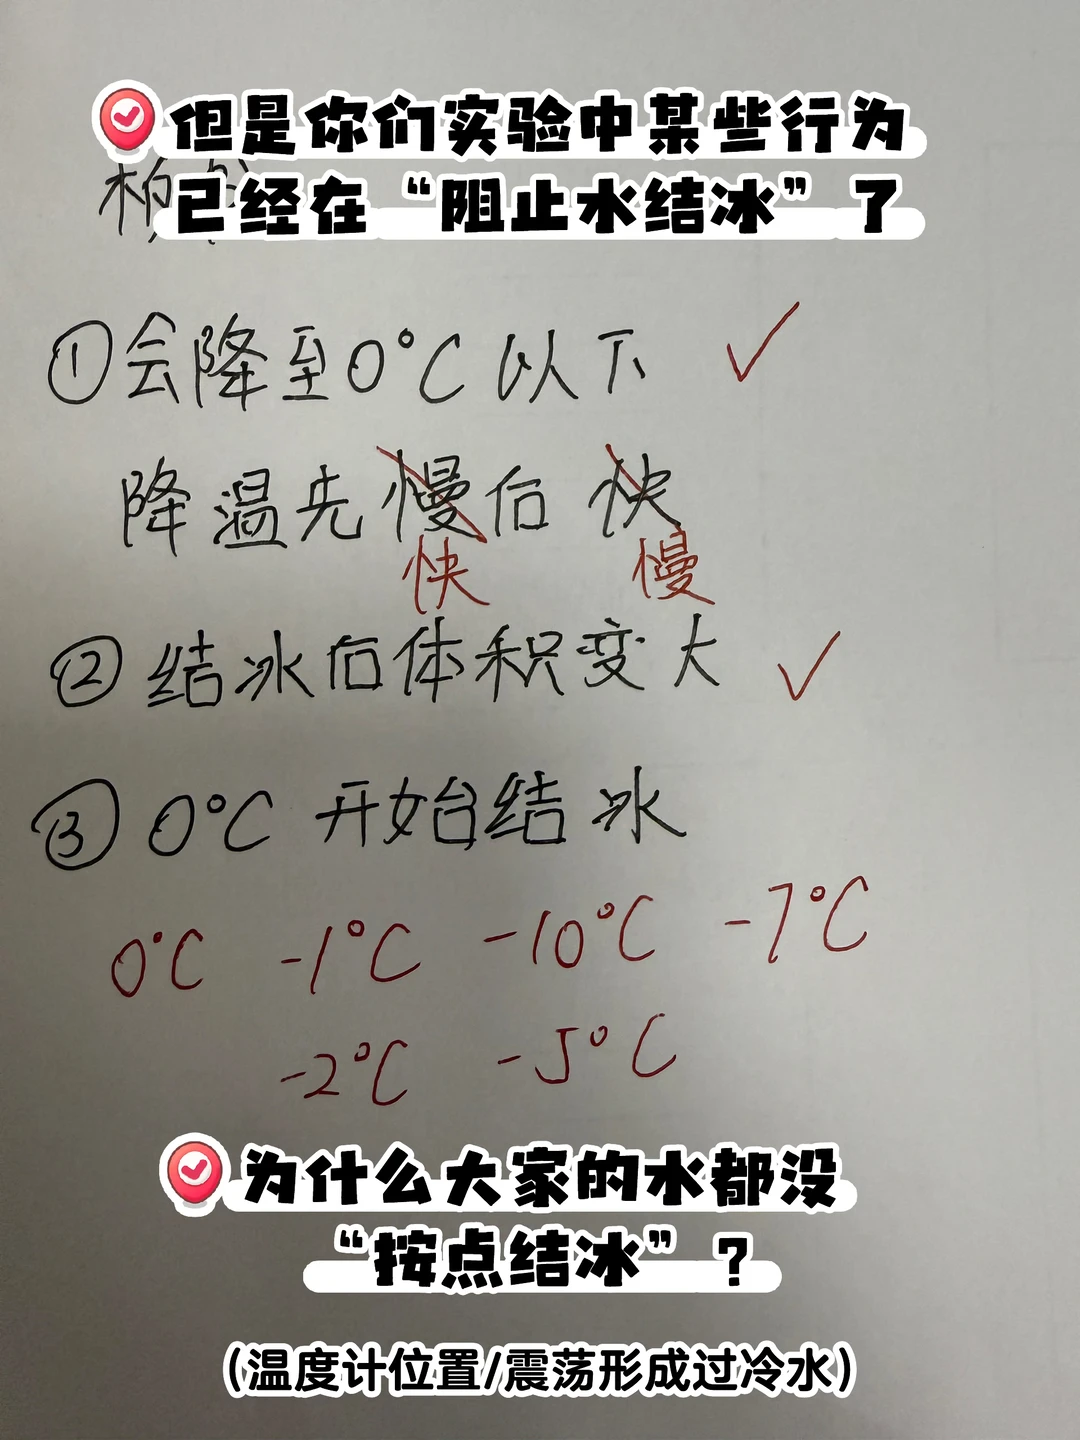 但是你们实验中某些行为
已经在“阻止水结冰”了
①会降至0℃以下 ✓
降温先慢后快
快 慢
②结冰后体积变大 ✓
③0℃开始结冰
0℃ -1℃ -10℃ -7℃
-2℃ -5℃
为什么大家的水都没
“按点结冰”？
（温度计位置/震荡形成过冷水）